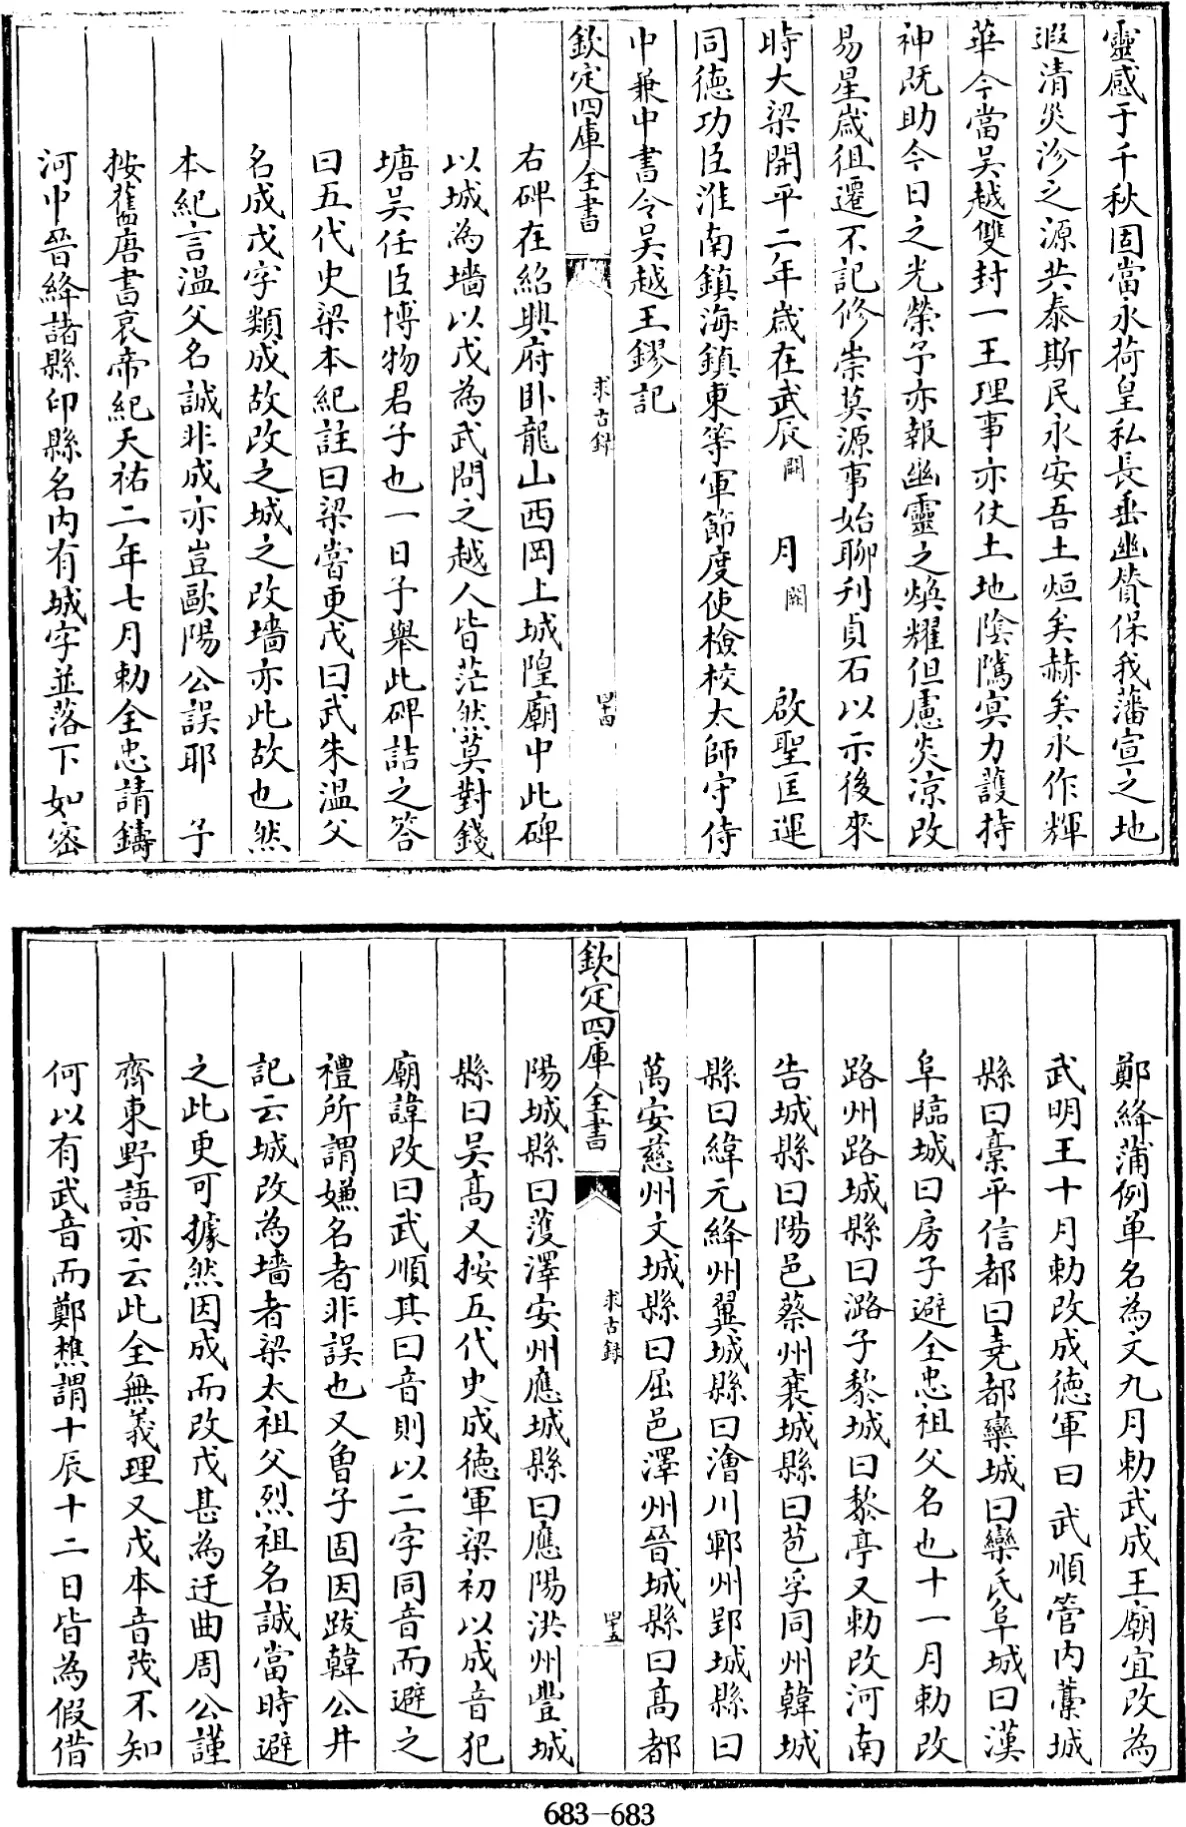 靈感于千秋固當永荷皇私長垂幽贊保我藩宣之地
遐清災沴之源共泰斯民永安吾土烜矣赫矣永作輝
華今當吳越雙封一王理事亦仗土地陰隲冥力護持
神既助今日之光榮予亦報幽靈之煥耀但慮炎凉改
易星歳徂遷不記修崇莫源事始聊刋貞石以示後來
時大梁開平二年歳在武辰闕 月闕 啟聖匡運
同德功臣淮南鎮海鎮東等軍節度使檢校太師守侍
中兼中書令吳越王鏐記
欽定四庫全書 求古録 四十四
右碑在紹興府卧龍山西岡上城隍廟中此碑
以城為墻以戊為武問之越人皆茫然莫對錢
塘吳任臣博物君子也一日予舉此碑詰之答
曰五代史梁本紀註曰梁嘗更戊曰武朱溫父
名成戊字類成故改之城之改墻亦此故也然
本紀言溫父名誠非成亦豈歐陽公誤耶 予
按舊唐書哀帝紀天祐二年七月勅全忠請鑄
河中晉絳諸縣印縣名内有城字並落下如密
鄭絳蒲例单名為文九月勅武成王廟宜改為
武明王十月勅改成徳軍曰武順管内藁城
縣曰槀平信都曰堯都欒城曰欒氏阜城曰漢
阜臨城曰房子避全忠祖父名也十一月勅改
路州路城縣曰潞子黎城曰黎亭又勅改河南
告城縣曰陽邑蔡州襄城縣曰苞孚同州韓城
縣曰緯元絳州翼城縣曰澮川鄆州鄆城縣曰
萬安慈州文城縣曰屈邑澤州晉城縣曰髙都
欽定四庫全書 求古録 四十五
陽城縣曰濩澤安州應城縣曰應陽洪州豐城
縣曰吳髙又按五代史成徳軍梁初以成音犯
廟諱改曰武順其曰音則以二字同音而避之
禮所謂嫌名者非誤也又魯子固因跋韓公井
記云城改為墻者梁太祖父烈祖名誠當時避
之此更可據然因成而改戊甚為迂曲周公謹
齊東野語亦云此全無義理又戊本音茂不知
何以有武音而鄭樵謂十辰十二日皆為假借
683-683